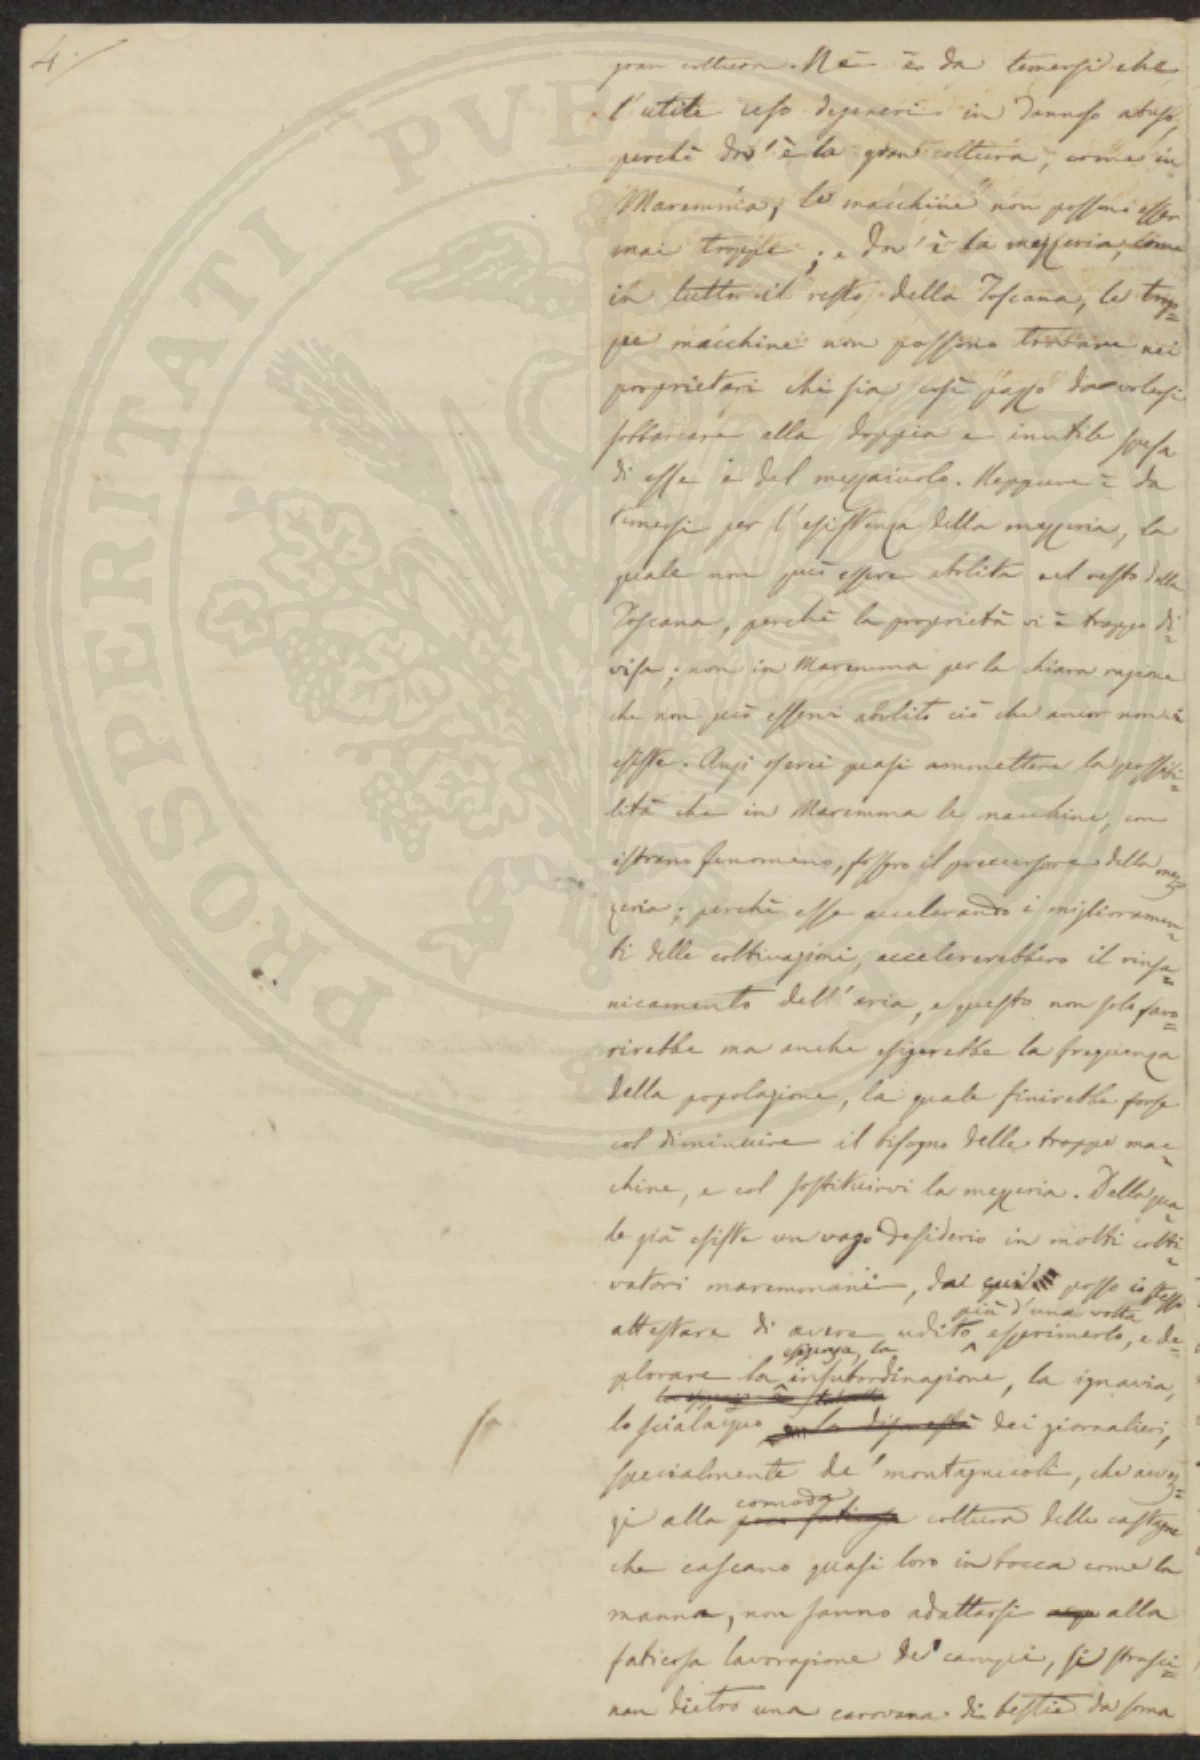 4./
gran coltura. Nè è da temersi che
l'utile uso degeneri in dannoso abuso,
perchè dov'è la gran coltura, come in
Maremma, le macchine non possono esser
mai troppe; e dov'è la mezzeria, come
in tutto il resto della Toscana, le trop=
pe macchine non possono trovare nei
proprietari chi sia così pazzo da volersi
sobbarcare alla doppia e inutile spesa
di esse e del mezzaiuolo. Neppure è da
temersi per l'esistenza della mezzeria, la
quale non può essere abolita nel resto della
Toscana, perchè la proprietà vi è troppo di=
visa; non in Maremma per la chiara ragione
che non può esservi abolito ciò che ancor non vi
esiste. Anzi oserei quasi ammettere la possibi=
lità che in Maremma le macchine, con
istrano fenomeno, fossero il precursore della mez=
zeria; perchè esse accelerando i miglioramen=
ti delle coltivazioni, accelererebbero il risa=
nicamento dell'aria, e questo non solo favo=
rirebbe ma anche esigerebbe la frequenza
della popolazione, la quale finirebbe forse
col diminuire il bisogno delle troppe mac=
chine, e col sostituirvi la mezzeria. Della qua=
le già esiste un vago desiderio in molti colti=
vatori maremmani, dai quali posso io stesso
più d'una volta
attestare di avere udito esprimerlo, e de=
esigenza, la
plorare la insubordinazione, la ignavia,
lo scialacquo, e la disonestà dei giornalieri,
specialmente de' montagnuoli, che avvez=
comoda
zi alla poco faticosa coltura delle castagne
che cascano quasi loro in bocca come la
manna, non sanno adattarsi alla
faticosa lavorazione de' campi, si strasci=
nan dietro una carovana di bestie da soma
PROSPERITATI PVBLICAE